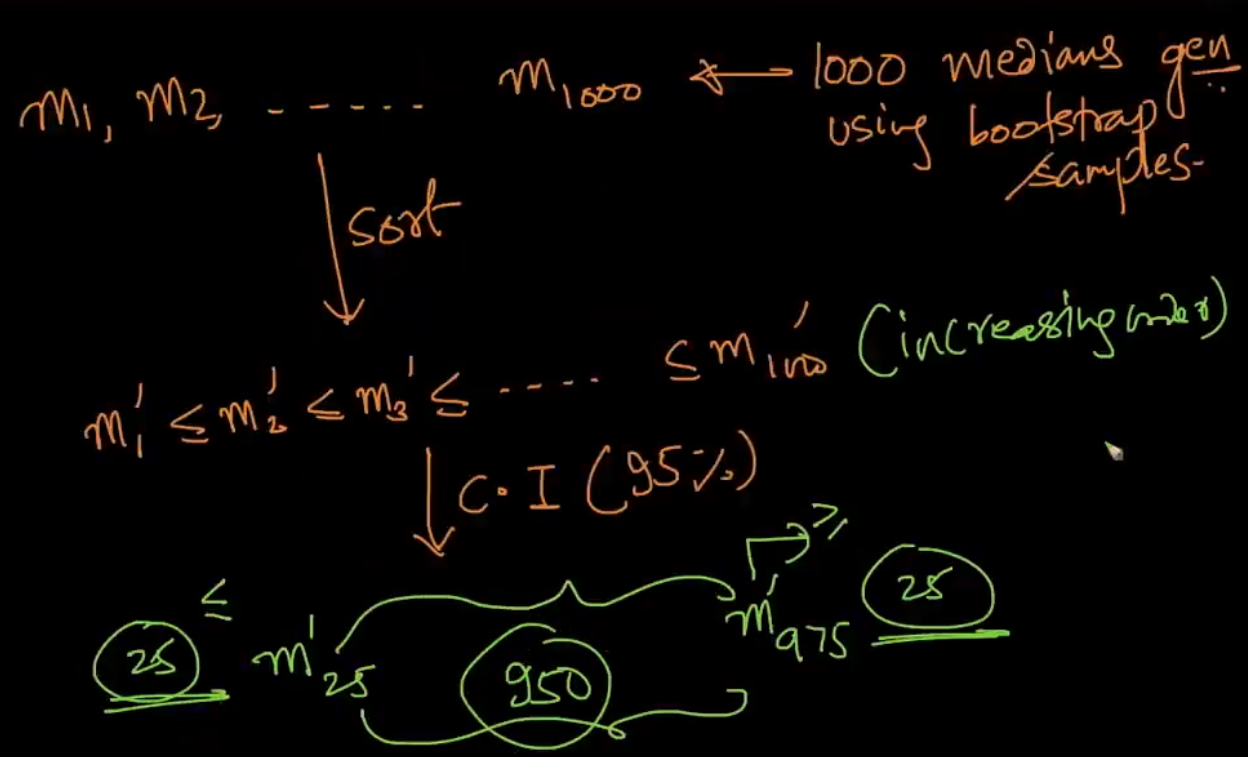 m1, m2, ------ m1000 ← 1000 medians gen
using bootstrap
samples-
sort
m1' ≤ m2' ≤ m3' ≤ ---- ≤ m1000' (increasing order)
C.I (95%)
25 ≤ m'25 950 m'975 ≥ 25